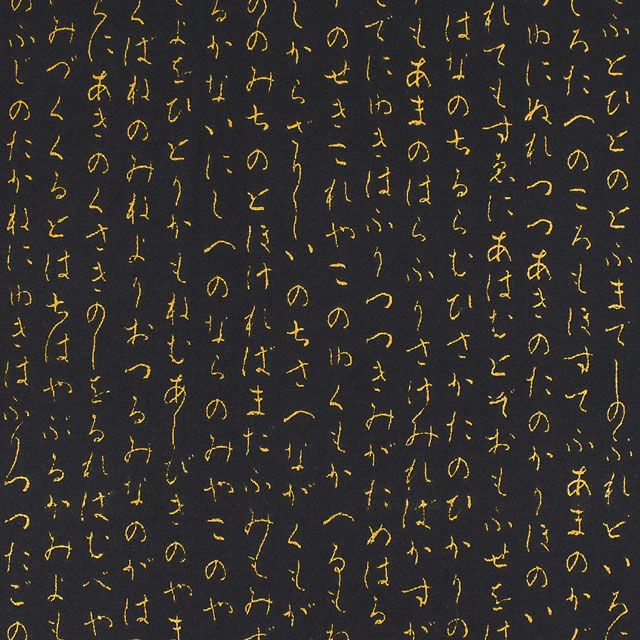 ふとひとのとふまてしのふれといろ
ろたへのころもほすてふあまのか
わにぬれつつあきのたのかりほのい
れてもすゑにあはむとぞおもふせを
はなのちるらむひさかたのひかりの
もあまのはらふりさけみればかすが
でにゆきはふりつつきみがためはる
のせきこれやこのゆくもかへるもわ
しからざりしいのちさへながくもが
ののみちのとほければまたふみもみ
るかないにしへのならのみやこの
よをひとりかもねむあしびきのやま
くばねのみねよりおつるみなのがは
らにあきのくさきのしをるればむべや
みづくくるとはちはやぶるかみよも
のふじのたかねにゆきはふりつつたごの